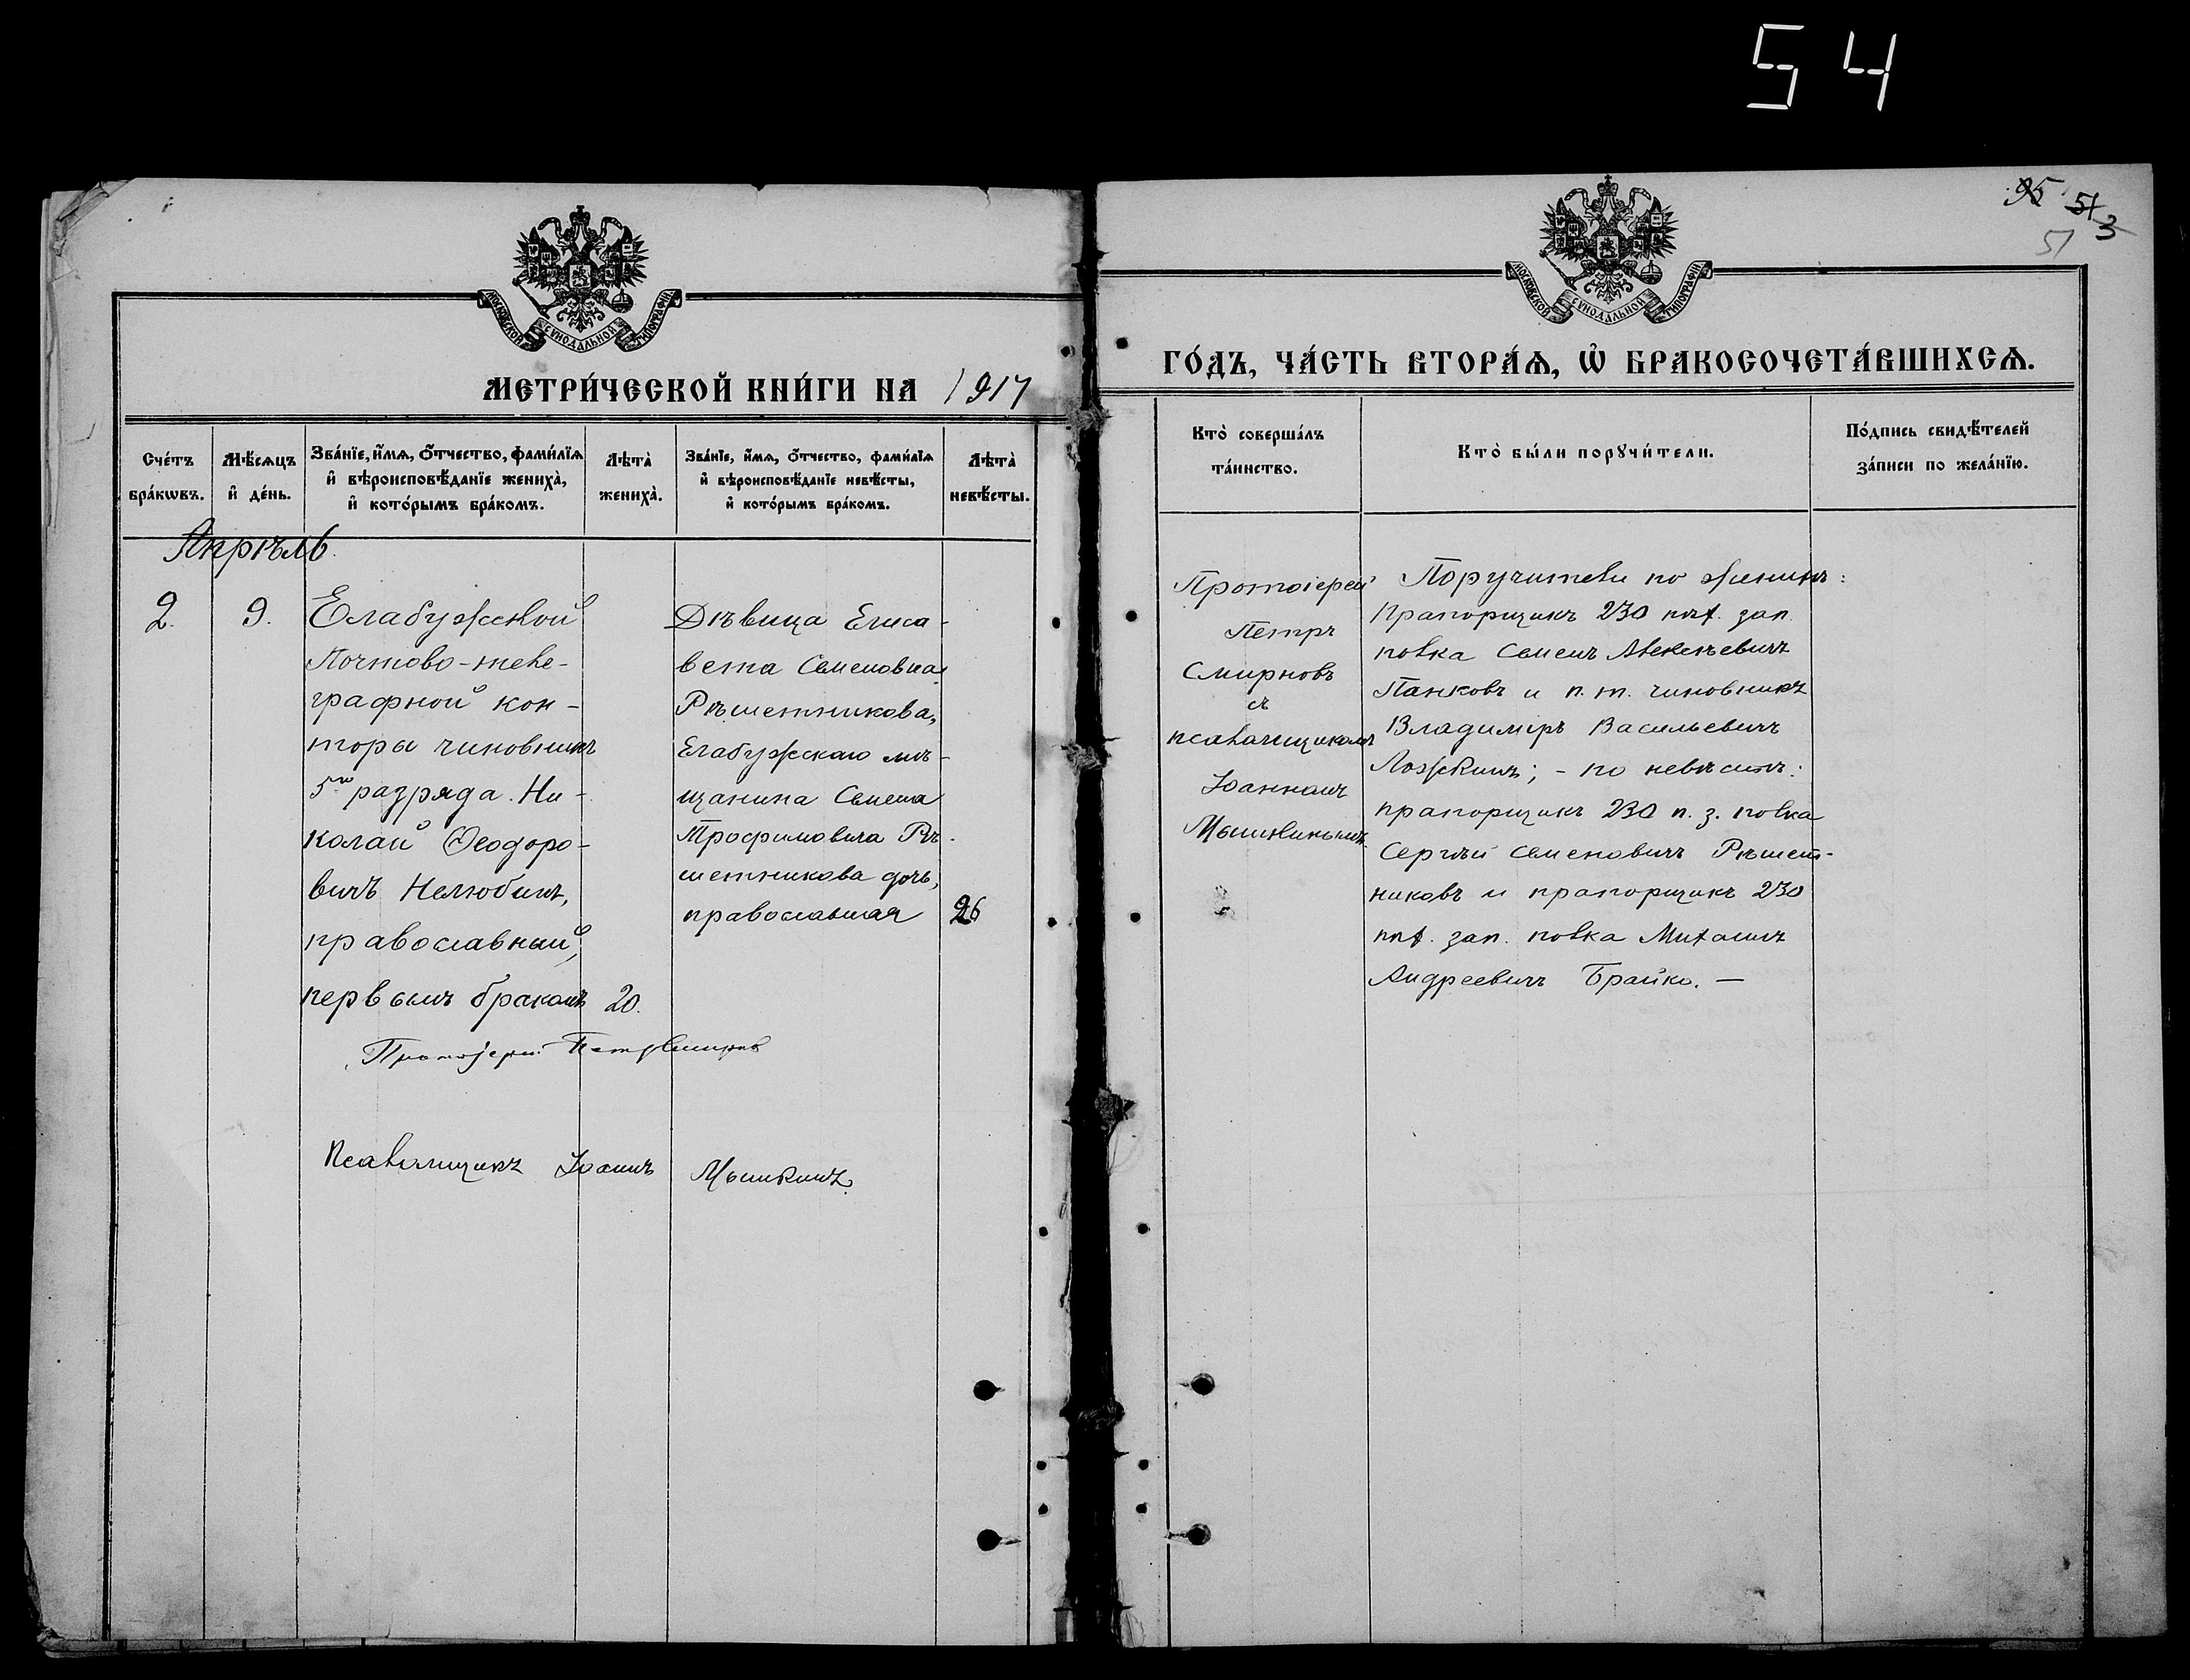 54
95 51 3
51
МОСКОВСКОЙ СѴНОДАЛЬНОЙ ТИПОГРАФІИ
МОСКОВСКОЙ СѴНОДАЛЬНОЙ ТИПОГРАФІИ
МЕТРИ́ЧЕСКОЙ КНИ́ГИ НА 1917
ГО́ДЪ, ЧА́СТЬ ВТОРА́Ѧ, Ѡ҆ БРАКОСОЧЕТА́ВШИХСѦ.
Сче́тъ
бра́кѡвъ.
Мѣ́сѧцъ
и҆ де́нь.
Зва́нїе, и҆́мѧ, ѻ҆́тчество, фами́лїѧ
и҆ вѣроисповѣ́данїе женихà,
и҆ кото́рымъ бра́комъ.
Лѣтà
женихà.
Зва́нїе, и҆́мѧ, ѻ҆́тчество, фами́лїѧ
и҆ вѣроисповѣ́данїе невѣ́сты,
и҆ кото́рымъ бра́комъ.
Лѣтà
невѣ́сты.
Ктò соверша́лъ
та́инство.
Ктò бы́ли порꙋчи́тели.
По́дпись свидѣ́телей
за́писи по жела́нїю.
Апрѣль.
2.
9.
Елабужской
Почтово-теле-
графной кон-
торы чиновникъ
5го разряда. Ни-
колай Ѳеодоро-
вичъ Нелюбинъ,
православный,
первымъ бракомъ
20.
Дѣвица Елиса-
вета Семеновна
Рѣшетникова,
Елабужскаго мѣ-
щанина Семена
Трофимовича Рѣ-
шетникова дочь,
православная
26
Протоіерей
Петръ
Смирновъ
съ
псаломщикомъ
Іоанномъ
Мышкинымъ
Поручители по женихѣ:
Прапорщикъ 230 пѣх. зап.
полка Семенъ Алексѣевичъ
Панковъ и п. т. чиновникъ
Владиміръ Васильевичъ
Ложкинъ; - по невѣстѣ:
прапорщикъ 230 п. з. полка
Сергѣй Семеновичъ Рѣшет-
никовъ и прапорщикъ 230
пѣх. зап. полка Михаилъ
Андреевичъ Брайко. —
Протоіерей Петръ Смирновъ
Псаломщикъ Іоаннъ Мышкинъ.